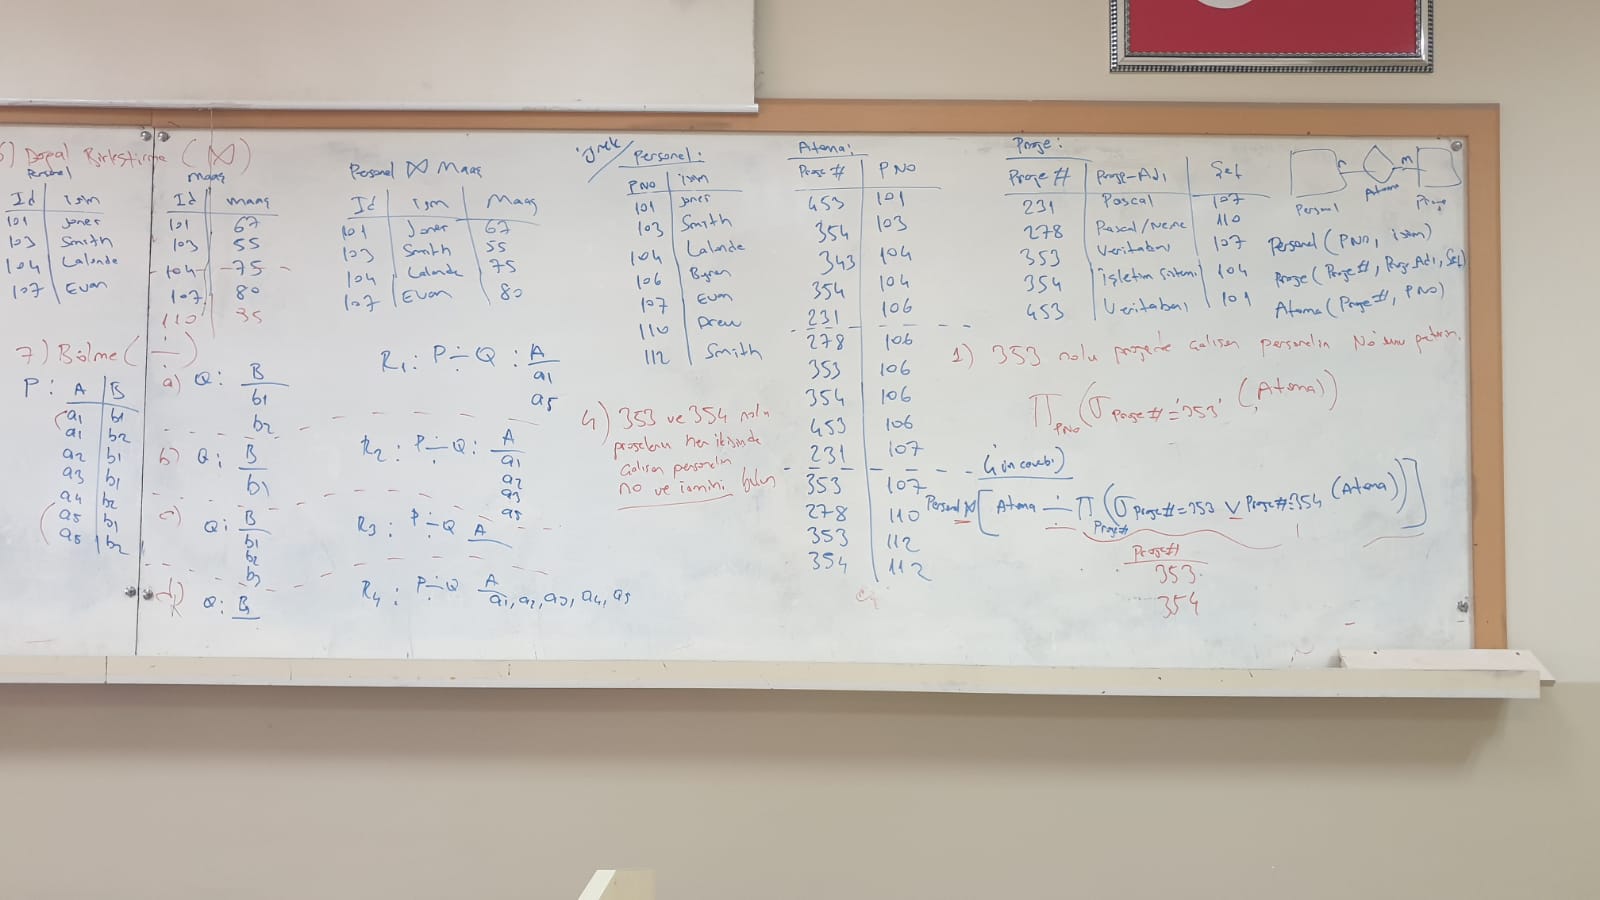 6) Doğal Birleştirme (⋈)
Personel
Id | isim
101 | Jones
103 | Smith
104 | Lalonde
107 | Evan
maaş
Id | maaş
101 | 67
103 | 55
104 | 75
107 | 80
110 | 35
Personel ⋈ Maaş
Id | isim | Maaş
101 | Jones | 67
103 | Smith | 55
104 | Lalonde | 75
107 | Evan | 80
7) Bölme (÷)
P: A | B
a1 | b1
a1 | b2
a2 | b1
a3 | b1
a4 | b2
a5 | b1
a5 | b2
a) Q: B
b1
b2
R1: P÷Q: A
a1
a5
b) Q: B
b1
R2: P÷Q: A
a1
a2
a3
a5
c) Q: B
b1
b2
b3
R3: P÷Q A
d) Q: B
R4: P÷Q A
a1, a2, a3, a4, a5
Örnek/ Personel:
PNO | isim
101 | Jones
103 | Smith
104 | Lalonde
106 | Byron
107 | Evan
110 | Drew
112 | Smith
4) 353 ve 354 nolu
projelerin her ikisinde
çalışan personelin
no ve ismini bulun
Atama:
Proje # | PNO
453 | 101
354 | 103
343 | 104
354 | 104
231 | 106
278 | 106
353 | 106
354 | 106
453 | 106
231 | 107
353 | 107
278 | 110
353 | 112
354 | 112
Proje:
Proje # | Proje-Adı | Şef
231 | Pascal | 107
278 | Pascal/Nesne | 110
353 | Veritabanı | 107
354 | işletim sistemi | 104
453 | Veritabanı | 101
n m
Personel Atama Proje
Personel (PNO, isim)
Proje (Proje#, Proje Adı, Şef)
Atama (Proje#, PNO)
1) 353 nolu projede çalışan personelin No sunu getirin.
∏PNO (σ Proje# = '353' (Atama))
(4 ün cevabı)
Personel ⋈ [Atama ÷ ∏Proje# (σ Proje#=353 ∨ Proje#=354 (Atama))]
Proje#
353
354